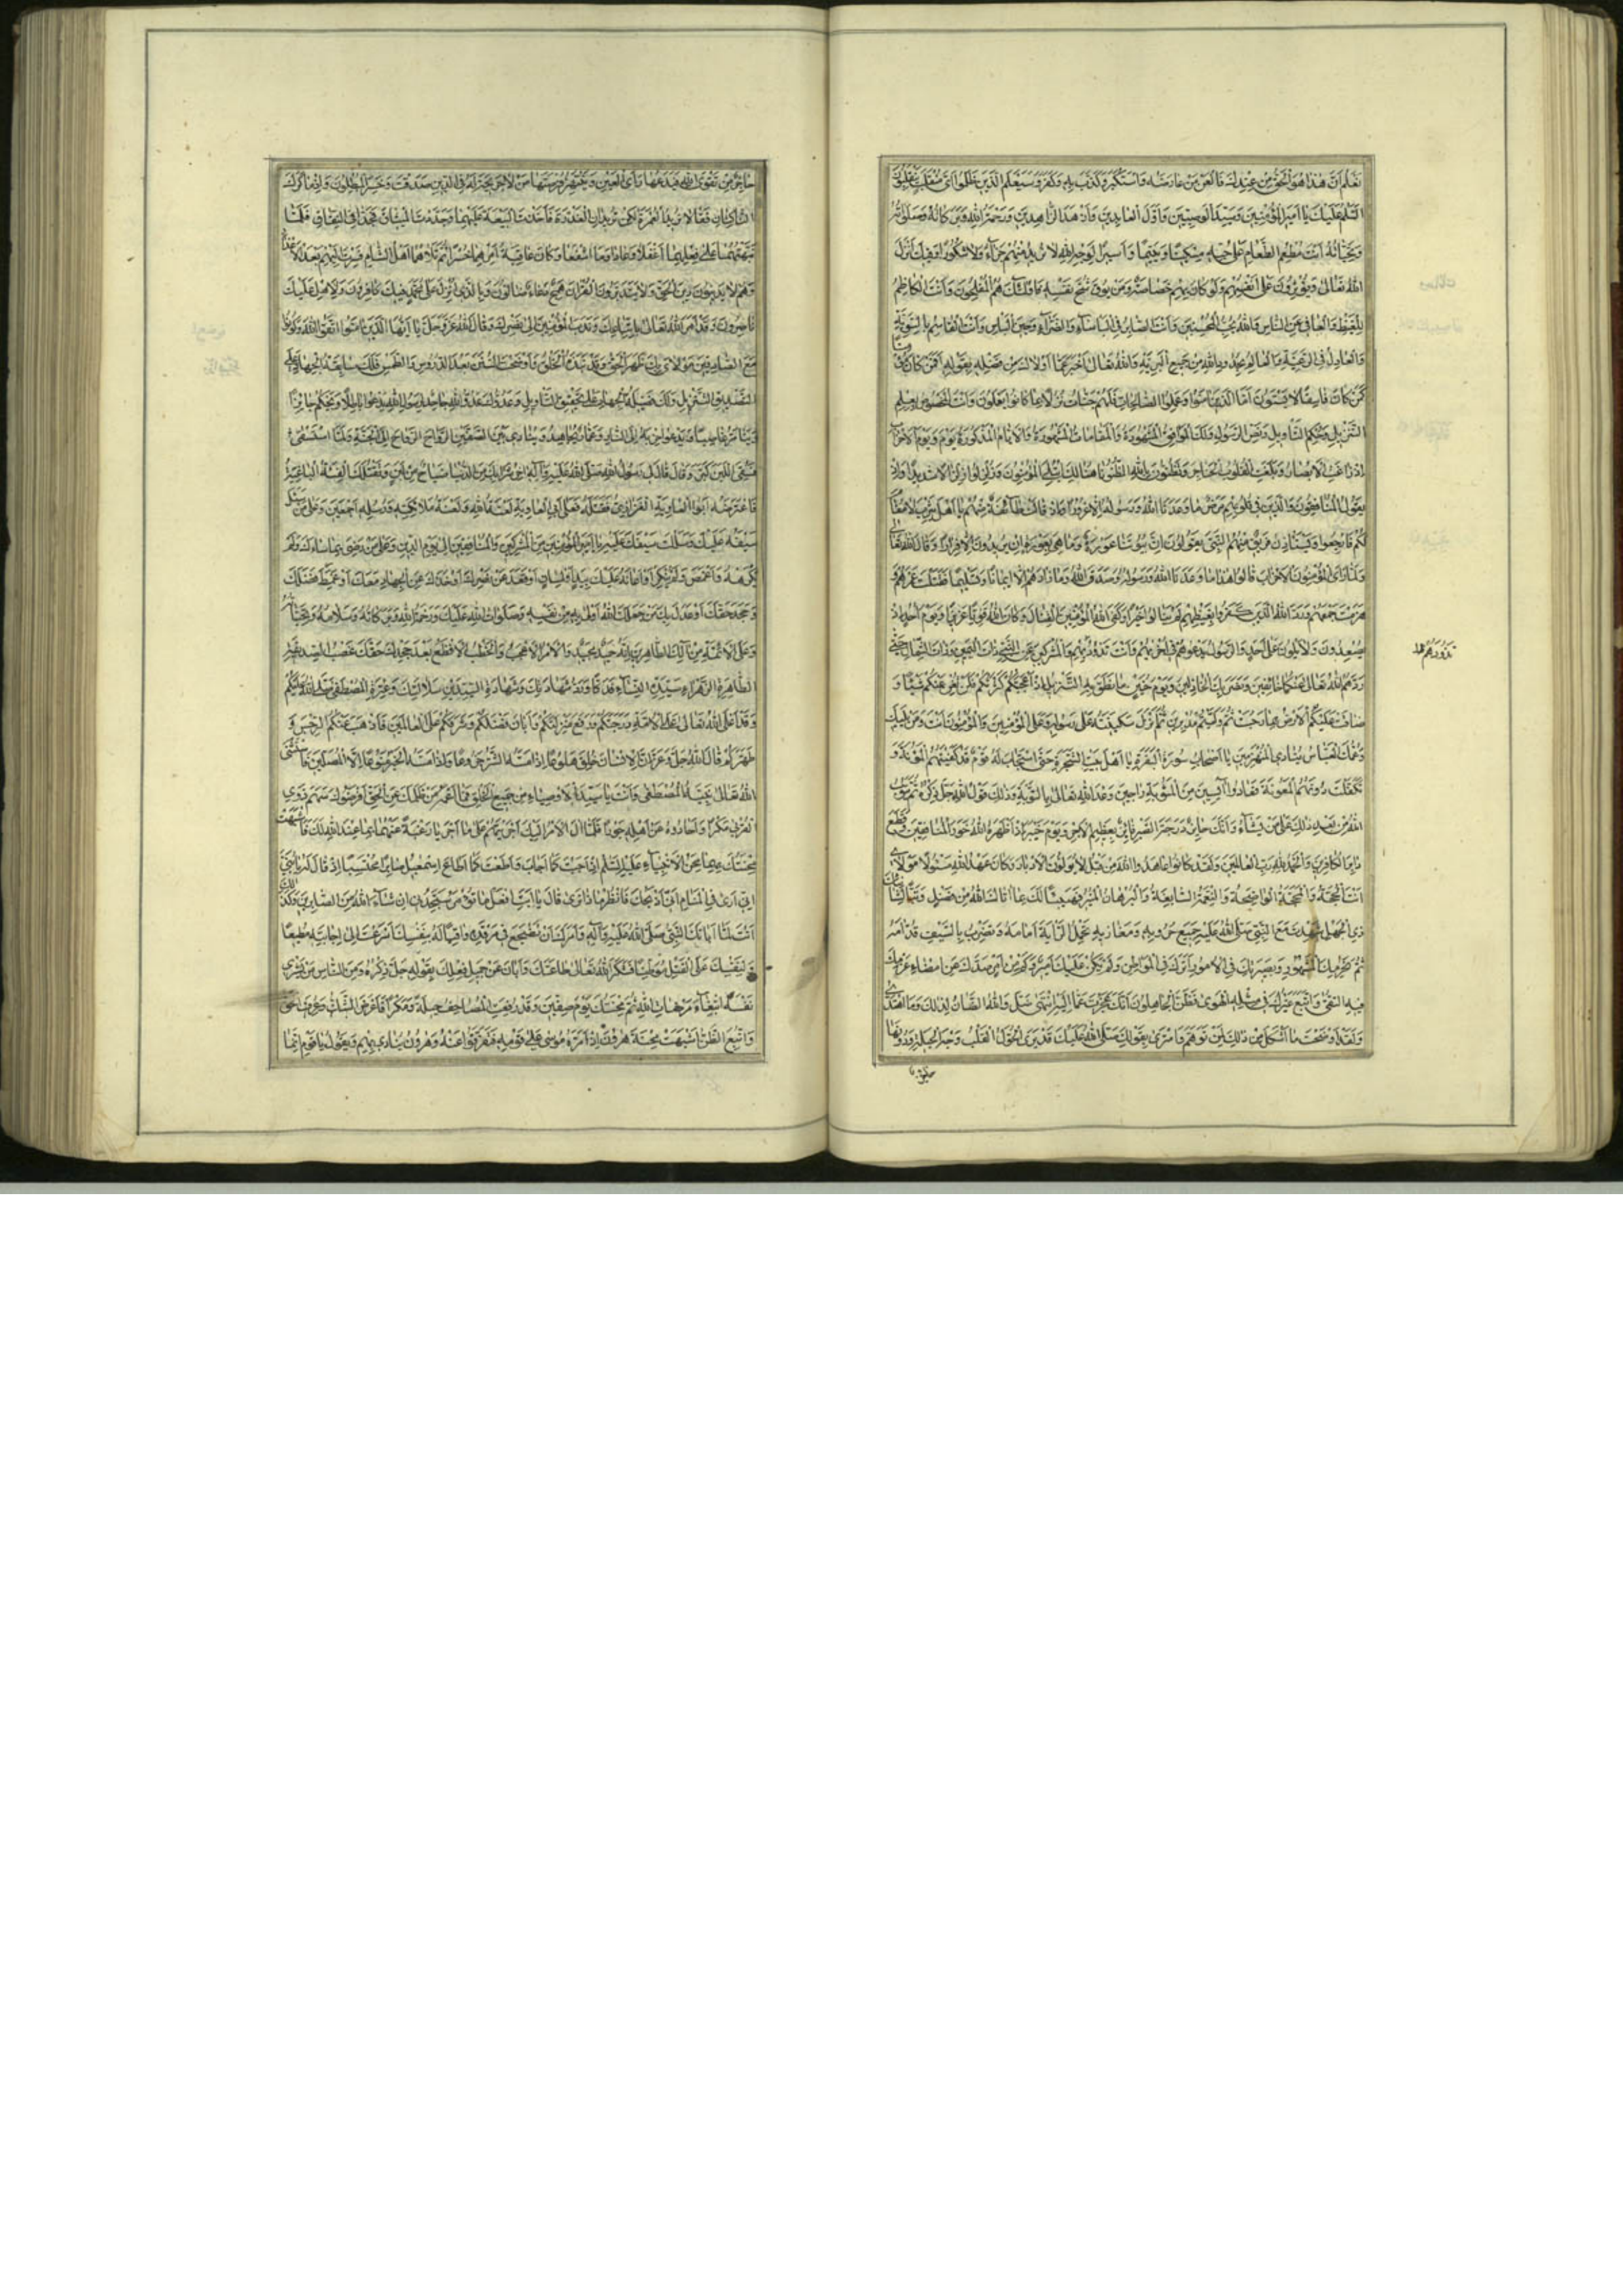 نَعْلَمُ اَنَّ هٰذَا هُوَ الْحَقُّ مِنْ عِنْدِكَ فَالْعَنْ مَنْ عَارَضَهُ وَاسْتَكْبَرَ وَكَذَّبَ بِهِ وَكَفَرَ وَسَيَعْلَمُ الَّذينَ ظَلَمُوا اَىَّ مُنْقَلَبٍ يَنْقَلِبُونَ
اَلسَّلٰمُ عَلَيْكَ يَا اَميرَ الْمُؤْمِنينَ وَسَيِّدَ الْوَصِيّينَ وَاَوَّلَ الْعَابِدينَ وَاَزْهَدَ الزَّاهِدينَ وَرَحْمَةُ اللهِ وَبَرَكَاتُهُ وَصَلَوَاتُهُ
وَتَحِيَّاتُهُ اَنْتَ مُطْعِمُ الطَّعَامِ عَلٰى حُبِّهِ مِسْكينًا وَيَتيمًا وَاَسيرًا لِوَجْهِ اللهِ لَا تُريدُ مِنْهُمْ جَزَاءً وَلَا شُكُورًا وَفيكَ اَنْزَلَ
اللهُ تَعَالٰى وَيُؤْثِرُونَ عَلٰى اَنْفُسِهِمْ وَلَوْ كَانَ بِهِمْ خَصَاصَةٌ وَمَنْ يُوقَ شُحَّ نَفْسِهِ فَاُولٰئِكَ هُمُ الْمُفْلِحُونَ وَاَنْتَ الْكَاظِمُ
لِلْغَيْظِ وَالْعَافى عَنِ النَّاسِ وَاللهُ يُحِبُّ الْمُحْسِنينَ وَاَنْتَ الصَّابِرُ فِى الْبَاْسَاءِ وَالضَّرَّاءِ وَحينَ الْبَاْسِ وَاَنْتَ الْقَاسِمُ بِالسَّوِيَّةِ
وَالْعَادِلُ فِى الرَّعِيَّةِ وَالْعَالِمُ بِحُدُودِ اللهِ مِنْ جَميعِ الْبَرِيَّةِ وَاللهُ تَعَالٰى اَخْبَرَ عَمَّا اَوْلَاكَ مِنْ فَضْلِهِ بِقَوْلِهِ اَفَمَنْ كَانَ مُؤْمِنًا
كَمَنْ كَانَ فَاسِقًا لَا يَسْتَوُونَ اَمَّا الَّذينَ اٰمَنُوا وَعَمِلُوا الصَّالِحَاتِ فَلَهُمْ جَنَّاتُ نُزُلًا بِمَا كَانُوا يَعْمَلُونَ وَاَنْتَ الْمَخْصُوصُ بِعِلْمِ
التَّنْزيلِ وَحُكْمِ التَّاْويلِ وَنَصِّ الرَّسُولِ وَلَكَ الْمَوَاقِفُ الْمَشْهُودَةُ وَالْمَقَامَاتُ الْمَشْهُورَةُ وَالْاَيَّامُ الْمَذْكُورَةُ يَوْمَ وَيَوْمَ الْاَحْزَابِ
اِذْ زَاغَتِ الْاَبْصَارُ وَبَلَغَتِ الْقُلُوبُ الْحَنَاجِرَ وَتَظُنُّونَ بِاللهِ الظُّنُونَا هُنَالِكَ ابْتُلِىَ الْمُؤْمِنُونَ وَزُلْزِلُوا زِلْزَالًا شَديدًا وَاِذْ
يَقُولُ الْمُنَافِقُونَ وَالَّذينَ فى قُلُوبِهِمْ مَرَضٌ مَا وَعَدَنَا اللهُ وَرَسُولُهُ اِلَّا غُرُورًا وَاِذْ قَالَتْ طَائِفَةٌ مِنْهُمْ يَا اَهْلَ يَثْرِبَ لَا مُقَامَ
لَكُمْ فَارْجِعُوا وَيَسْتَاْذِنُ فَريقٌ مِنْهُمُ النَّبِىَّ يَقُولُونَ اِنَّ بُيُوتَنَا عَوْرَةٌ وَمَا هِىَ بِعَوْرَةٍ اِنْ يُريدُونَ اِلَّا فِرَارًا وَقَالَ اللهُ تَعَالٰى
وَلَمَّا رَاَى الْمُؤْمِنُونَ الْاَحْزَابَ قَالُوا هٰذَا مَا وَعَدَنَا اللهُ وَرَسُولُهُ وَصَدَقَ اللهُ وَمَا زَادَهُمْ اِلَّا ايمَانًا وَتَسْليمًا فَقَتَلْتَ عَمْرَهُمْ وَ
هَزَمْتَ جَمْعَهُمْ وَرَدَّ اللهُ الَّذينَ كَفَرُوا بِغَيْظِهِمْ لَمْ يَنَالُوا خَيْرًا وَكَفَى اللهُ الْمُؤْمِنينَ الْقِتَالَ وَكَانَ اللهُ قَوِيًّا عَزيزًا وَيَوْمَ اُحُدٍ اِذْ
يُصْعِدُونَ وَلَا يَلْوُونَ عَلٰى اَحَدٍ وَالرَّسُولُ يَدْعُوهُمْ فى اُخْرٰيهُمْ وَاَنْتَ تَذُودُ بُهَمَ الْمُشْرِكينَ عَنِ النَّبِىِّ ذَاتَ الْيَمينِ وَذَاتَ الشِّمَالِ حَتّٰى
رَدَّهُمُ اللهُ تَعَالٰى عَنْكُمَا خَائِفينَ وَنَصَرَ بِكَ الْخَاذِلينَ وَيَوْمَ حُنَيْنٍ مَا نَطَقَ بِهِ التَّنْزيلُ اِذْ اَعْجَبَتْكُمْ كَثْرَتُكُمْ فَلَمْ تُغْنِ عَنْكُمْ شَيْئًا وَ
ضَاقَتْ عَلَيْكُمُ الْاَرْضُ بِمَا رَحُبَتْ ثُمَّ وَلَّيْتُمْ مُدْبِرينَ ثُمَّ اَنْزَلَ سَكينَتَهُ عَلٰى رَسُولِهِ وَعَلَى الْمُؤْمِنينَ وَالْمُؤْمِنُونَ اَنْتَ وَمَنْ يَليكَ
وَعَمُّكَ الْعَبَّاسُ يُنَادِى الْمُنْهَزِمينَ يَا اَصْحَابَ سُورَةِ الْبَقَرَةِ يَا اَهْلَ بَيْعَةِ الشَّجَرَةِ حَتّٰى اسْتَجَابَ لَهُ قَوْمٌ قَدْ كَفَيْتَهُمُ الْمَؤُنَةَ وَ
تَكَفَّلْتَ دُونَهُمُ الْمَعُونَةَ فَعَادُوا اٰيِسينَ مِنَ الْمَثُوبَةِ رَاجينَ وَعْدَ اللهِ تَعَالٰى بِالتَّوْبَةِ وَذٰلِكَ قَوْلُ اللهِ جَلَّ ذِكْرُهُ ثُمَّ يَتُوبُ
اللهُ مِنْ بَعْدِ ذٰلِكَ عَلٰى مَنْ يَشَاءُ وَاَنْتَ حَائِزٌ دَرَجَةَ الصَّبْرِ فَائِزٌ بِعَظيمِ الْاَجْرِ وَيَوْمَ خَيْبَرَ اِذْ اَظْهَرَ اللهُ خَوَرَ الْمُنَافِقينَ وَقَطَعَ
دَابِرَ الْكَافِرينَ وَالْحَمْدُ لِلّٰهِ رَبِّ الْعَالَمينَ وَلَقَدْ كَانُوا عَاهَدُوا اللهَ مِنْ قَبْلُ لَا يُوَلُّونَ الْاَدْبَارَ وَكَانَ عَهْدُ اللهِ مَسْئُولًا مَوْلَاىَ
اَنْتَ الْحُجَّةُ وَالْمَحَجَّةُ الْوَاضِحَةُ وَالنِّعْمَةُ السَّابِغَةُ وَالْبُرْهَانُ الْمُنيرُ فَهَنيئًا لَكَ بِمَا اٰتَاكَ اللهُ مِنْ فَضْلٍ وَتَبًّا لِشَانِئِكَ
ذِى الْجَهْلِ شَهِدْتَ مَعَ النَّبِىِّ صَلَّى اللهُ عَلَيْهِ جَميعَ حُرُوبِهِ وَمَغَازيهِ تَحْمِلُ الرَّايَةَ اَمَامَهُ وَتَضْرِبُ بِالسَّيْفِ قُدَّامَهُ
ثُمَّ لِحَزْمِكَ الْمَشْهُورِ وَبَصيرَتِكَ فِى الْاُمُورِ اَمَّرَكَ فِى الْمَوَاطِنِ وَلَمْ يَكُنْ عَلَيْكَ اَميرٌ وَكَمْ مِنْ اَمْرٍ صَدَّكَ عَنْ اِمْضَاءِ عَزْمِكَ
فيهِ التُّقٰى وَاتَّبَعَ غَيْرُكَ فى مِثْلِهِ الْهَوٰى فَظَنَّ الْجَاهِلُونَ اَنَّكَ عَجَزْتَ عَمَّا اِلَيْهِ انْتَهٰى ضَلَّ وَاللهِ الظَّانُّ لِذٰلِكَ وَمَا اهْتَدٰى
وَلَقَدْ اَوْضَحْتَ مَا اَشْكَلَ مِنْ ذٰلِكَ لِمَنْ تَوَهَّمَ وَامْتَرٰى بِقَوْلِكَ صَلَّى اللهُ عَلَيْكَ قَدْ يَرَى الْحُوَّلُ الْقُلَّبُ وَجْهَ الْحيلَةِ وَدُونَهَا
حَاجِزٌ مِنْ تَقْوَى اللهِ فَيَدَعُهَا رَاْىَ الْعَيْنِ وَيَنْتَهِزُ فُرْصَتَهَا مَنْ لَا حَريجَةَ لَهُ فِى الدّينِ صَدَقْتَ وَخَسِرَ الْمُبْطِلُونَ وَاِذْ مَاكَرَكَ
النَّاكِثَانِ فَقَالَا نُريدُ الْعُمْرَةَ لٰكِنْ تُريدَانِ الْغَدْرَةَ فَاَخَذْتَ الْبَيْعَةَ عَلَيْهِمَا وَجَدَّدْتَ الْميثَاقَ فَجَدَّا فِى النِّفَاقِ فَلَمَّا
نَبَّهْتَهُمَا عَلٰى فِعْلِهِمَا اَغْفَلَا وَعَادَا وَمَا انْتَفَعَا وَكَانَ عَاقِبَةُ اَمْرِهِمَا خُسْرًا ثُمَّ تَلَاهُمَا اَهْلُ الشَّامِ فَسِرْتَ اِلَيْهِمْ بَعْدَ الْاِعْذَارِ
وَهُمْ لَا يَدينُونَ دينَ الْحَقِّ وَلَا يَتَدَبَّرُونَ الْقُرْاٰنَ هَمَجٌ رَعَاعٌ ضَالُّونَ وَبِالَّذى اُنْزِلَ عَلٰى مُحَمَّدٍ فيكَ كَافِرُونَ وَلِاَهْلِ الْخِلَافِ عَلَيْكَ
نَاصِرُونَ وَقَدْ اَمَرَ اللهُ تَعَالٰى بِاتِّبَاعِكَ وَنَدَبَ الْمُؤْمِنينَ اِلٰى نَصْرِكَ وَقَالَ اللهُ عَزَّ وَجَلَّ يَا اَيُّهَا الَّذينَ اٰمَنُوا اتَّقُوا اللهَ وَكُونُوا
مَعَ الصَّادِقينَ مَوْلَاىَ بِكَ ظَهَرَ الْحَقُّ وَقَدْ نَبَذَهُ الْخَلْقُ وَاَوْضَحْتَ السُّنَنَ بَعْدَ الدُّرُوسِ وَالطَّمْسِ فَلَكَ سَابِقَةُ الْجِهَادِ عَلٰى
التَّصْديقِ التَّنْزيلِ وَلَكَ فَضيلَةُ الْجِهَادِ عَلٰى تَحْقيقِ التَّاْويلِ وَعَدُوُّكَ عَدُوُّ اللهِ جَاحِدٌ لِرَسُولِ اللهِ يَدْعُوا بَاطِلًا وَيَحْكُمُ جَائِرًا
وَيَتَاَمَّرُ غَاصِبًا وَيَدْعُو حِزْبَهُ اِلَى النَّارِ وَعَمَّارٌ يُجَاهِدُ وَيُنَادى بَيْنَ الصَّفَّيْنِ الرَّوَاحَ الرَّوَاحَ اِلَى الْجَنَّةِ وَلَمَّا اسْتَسْقٰى
فَسُقِىَ اللَّبَنَ كَبَّرَ وَقَالَ قَالَ لى رَسُولُ اللهِ صَلَّى اللهُ عَلَيْهِ وَاٰلِهِ اٰخِرُ شَرَابِكَ مِنَ الدُّنْيَا ضَيَاحٌ مِنْ لَبَنٍ وَتَقْتُلُكَ الْفِئَةُ الْبَاغِيَةُ
فَاعْتَرَضَهُ اَبُو الْعَادِيَةِ الْفَزَارِىُّ فَقَتَلَهُ فَعَلٰى اَبِى الْعَادِيَةِ لَعْنَةُ اللهِ وَلَعْنَةُ مَلَائِكَتِهِ وَرُسُلِهِ اَجْمَعينَ وَعَلٰى مَنْ سَلَّ
سَيْفَهُ عَلَيْكَ وَسَلَلْتَ سَيْفَكَ عَلَيْهِ يَا اَميرَ الْمُؤْمِنينَ مِنَ الْمُشْرِكينَ وَالْمُنَافِقينَ اِلٰى يَوْمِ الدّينِ وَعَلٰى مَنْ رَضِىَ بِمَا سَاءَكَ وَلَمْ
يَكْرَهْهُ وَاَغْمَضَ وَلَمْ يُنْكِرْ اَوْ اَعَانَ عَلَيْكَ بِيَدٍ اَوْ لِسَانٍ اَوْ قَعَدَ عَنْ نَصْرِكَ اَوْ خَذَلَ عَنِ الْجِهَادِ مَعَكَ اَوْ غَمَطَ فَضْلَكَ
وَجَحَدَ حَقَّكَ اَوْ عَدَلَ بِكَ مَنْ جَعَلَكَ اللهُ اَوْلٰى بِهِ مِنْ نَفْسِهِ وَصَلَوَاتُ اللهِ عَلَيْكَ وَرَحْمَةُ اللهِ وَبَرَكَاتُهُ وَسَلَامُهُ وَتَحِيَّاتُهُ
وَعَلَى الْاَئِمَّةِ مِنْ اٰلِكَ الطَّاهِرينَ اِنَّهُ حَميدٌ مَجيدٌ وَالْاَمْرُ الْاَعْجَبُ وَالْخَطْبُ الْاَفْظَعُ بَعْدَ جَحْدِكَ حَقَّكَ غَصْبُ الصِّدّيقَةِ
الطَّاهِرَةِ الزَّهْرَاءِ سَيِّدَةِ النِّسَاءِ فَدَكًا وَرَدُّ شَهَادَتِكَ وَشَهَادَةِ السَّيِّدَيْنِ سُلَالَتِكَ وَعِتْرَةِ الْمُصْطَفٰى صَلَّى اللهُ عَلَيْكُمْ
وَقَدْ اَعْلَى اللهُ تَعَالٰى عَلَى الْاُمَّةِ دَرَجَتَكُمْ وَرَفَعَ مَنْزِلَتَكُمْ وَاَبَانَ فَضْلَكُمْ وَشَرَّفَكُمْ عَلَى الْعَالَمينَ فَاَذْهَبَ عَنْكُمُ الرِّجْسَ وَ
طَهَّرَكُمْ قَالَ اللهُ جَلَّ وَعَزَّ اِنَّ الْاِنْسَانَ خُلِقَ هَلُوعًا اِذَا مَسَّهُ الشَّرُّ جَزُوعًا وَاِذَا مَسَّهُ الْخَيْرُ مَنُوعًا اِلَّا الْمُصَلّينَ فَاسْتَثْنَى
اللهُ تَعَالٰى نَبِيَّهُ الْمُصْطَفٰى وَاَنْتَ يَا سَيِّدَ الْاَوْصِيَاءِ مِنْ جَميعِ الْخَلْقِ فَمَا اَعْمَهَ مَنْ ظَلَمَكَ عَنِ الْحَقِّ ثُمَّ اَفْرَضُوكَ سَهْمَ ذَوِى
الْقُرْبٰى مَكْرًا وَاَحَادُوهُ عَنْ اَهْلِهِ جَوْرًا فَلَمَّا اٰلَ الْاَمْرُ اِلَيْكَ اَجْرَيْتَهُمْ عَلٰى مَا اَجْرَيَا رَغْبَةً عَنْهُمَا بِمَا عِنْدَ اللهِ لَكَ فَاَشْبَهَتْ
مِحْنَتُكَ بِهِمَا مِحَنَ الْاَنْبِيَاءِ عَلَيْهِمُ السَّلٰمُ اِذْ اَجَبْتَ كَمَا اَجَابَ وَاَطَعْتَ كَمَا اَطَاعَ اِسْمٰعيلُ صَابِرًا مُحْتَسِبًا اِذْ قَالَ لَهُ يَا بُنَىَّ
اِنّى اَرٰى فِى الْمَنَامِ اَنّى اَذْبَحُكَ فَانْظُرْ مَاذَا تَرٰى قَالَ يَا اَبَتِ افْعَلْ مَا تُؤْمَرُ سَتَجِدُنى اِنْ شَاءَ اللهُ مِنَ الصَّابِرينَ وَكَذٰلِكَ
اَنْتَ لَمَّا اَبَاتَكَ النَّبِىُّ صَلَّى اللهُ عَلَيْهِ وَاٰلِهِ وَاَمَرَكَ اَنْ تَضْجَعَ فى مَرْقَدِهِ وَاقِيًا لَهُ بِنَفْسِكَ اَسْرَعْتَ اِلٰى اِجَابَتِهِ مُطيعًا
وَلِنَفْسِكَ عَلَى الْقَتْلِ مُوَطِّنًا فَشَكَرَ اللهُ تَعَالٰى طَاعَتَكَ وَاَبَانَ عَنْ جَميلِ فِعْلِكَ بِقَوْلِهِ جَلَّ ذِكْرُهُ وَمِنَ النَّاسِ مَنْ يَشْرى
نَفْسَهُ ابْتِغَاءَ مَرْضَاتِ اللهِ ثُمَّ مِحْنَتُكَ يَوْمَ صِفّينَ وَقَدْ رُفِعَتِ الْمَصَاحِفُ حيلَةً وَمَكْرًا فَاَعْرَضَ الشَّكُّ وَعُرِفَ الْحَقُّ
وَاتُّبِعَ الظَّنُّ اَشْبَهَتْ مِحْنَةَ هٰرُونَ اِذْ اَمَّرَهُ مُوسٰى عَلٰى قَوْمِهِ فَتَفَرَّقُوا عَنْهُ وَهٰرُونُ يُنَادى بِهِمْ وَيَقُولُ يَا قَوْمِ اِنَّمَا